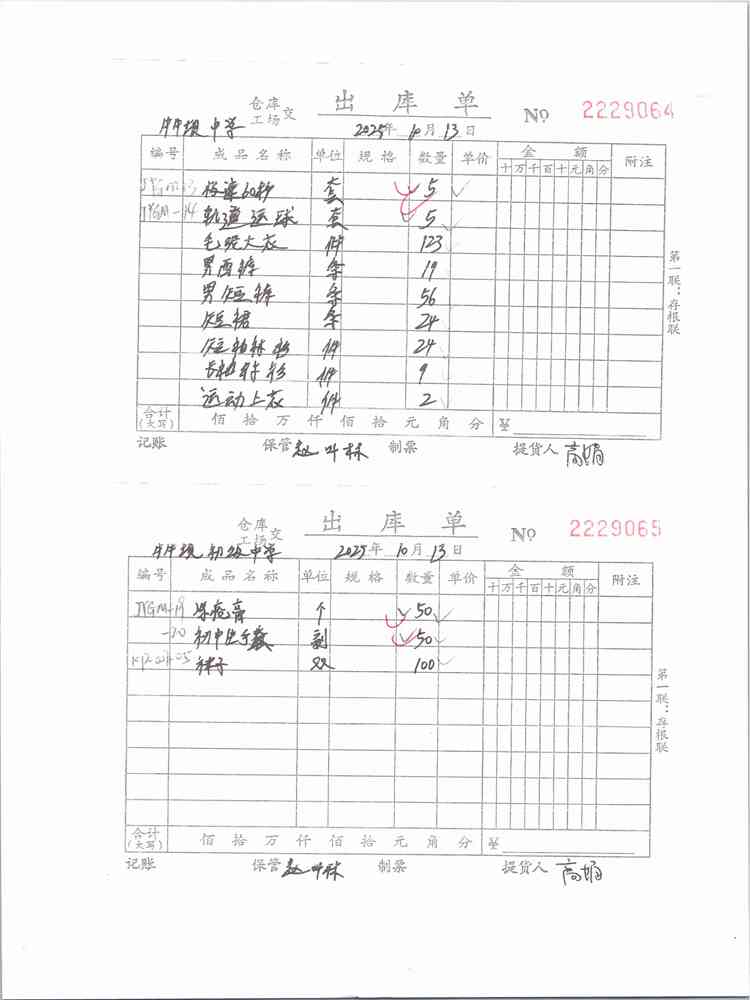 仓库
工场 交 出库单 No 2229064
中学 2025年 10月 13日
编号 成品名称 单位 规格 数量 单价 金额 附注
十万千百十元角分
极速60秒 套 5
JYGM-14 轨道运球 套 5
毛呢大衣 件 123
男西裤 条 19
男短裤 条 56
短裙 条 24
短袖衬衫 件 24
长袖衬衫 件 9
运动上衣 件 2
合计(大写) 佰拾万仟佰拾元角分 ¥
记账 保管 赵叶林 制票 提货人 高娟
第一联：存根联
仓库
工场 交 出库单 No 2229065
初级中学 2025年 10月 13日
编号 成品名称 单位 规格 数量 单价 金额 附注
十万千百十元角分
JYGM-19 冻疮膏 个 50
-20 初中生手套 副 50
袜子 双 100
合计(大写) 佰拾万仟佰拾元角分 ¥
记账 保管 赵叶林 制票 提货人 高娟
第一联：存根联